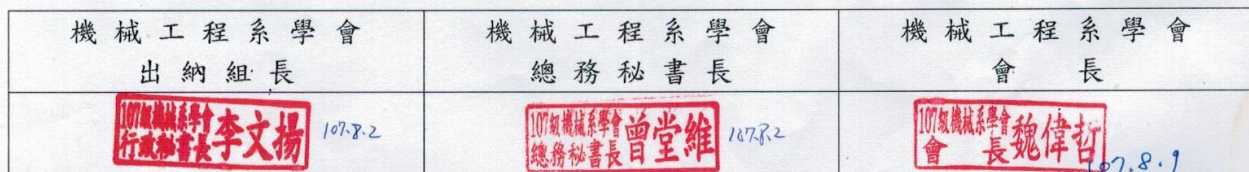 機械工程系學會
出納組長
機械工程系學會
總務秘書長
機械工程系學會
會長
107級機械系學會
行政秘書長 李文揚
107.8.2
107級機械系學會
總務秘書長 曾堂維
107.8.2
107級機械系學會
會長 魏偉哲
107.8.9